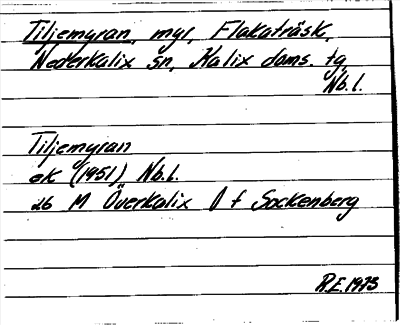 Tiljemyran, myr, Flakaträsk,
Nederkalix sn, Kalix doms. tg,
Nb.l.
Tiljemyran
ek (1951) Nb.l.
26 M Överkalix Ö f Sockenberg
R.E. 1973